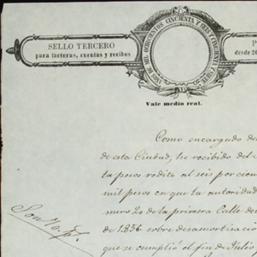 SELLO TERCERO
para facturas, cuentas y recibos
AÑOS DE MIL OCHOCIENTOS CINCUENTA Y SEIS Y CINCUENTA Y SIETE
desde 20
Vale medio real.
Como encargado de
de esta Ciudad, he recibido del
ta pesos rédito al seis por cien
mil pesos en que la autoridad
mero 20 de la primera Calle de
de 1856 sobre desamortizacion
que se cumplió el fin de Julio
Son